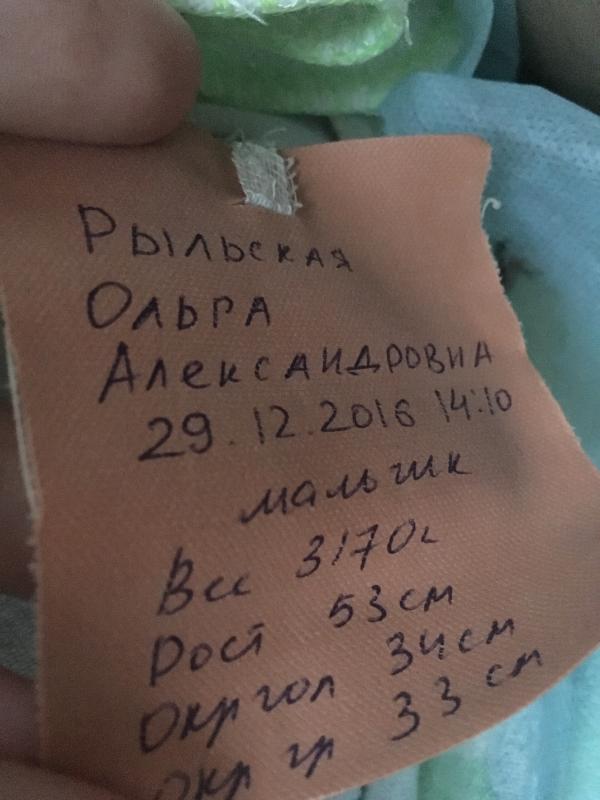 Рыльская
Ольга
Александровна
29.12.2016 14:10
мальчик
Вес 3170г
Рост 53 см
Окр гол 34 см
Окр гр 33 см